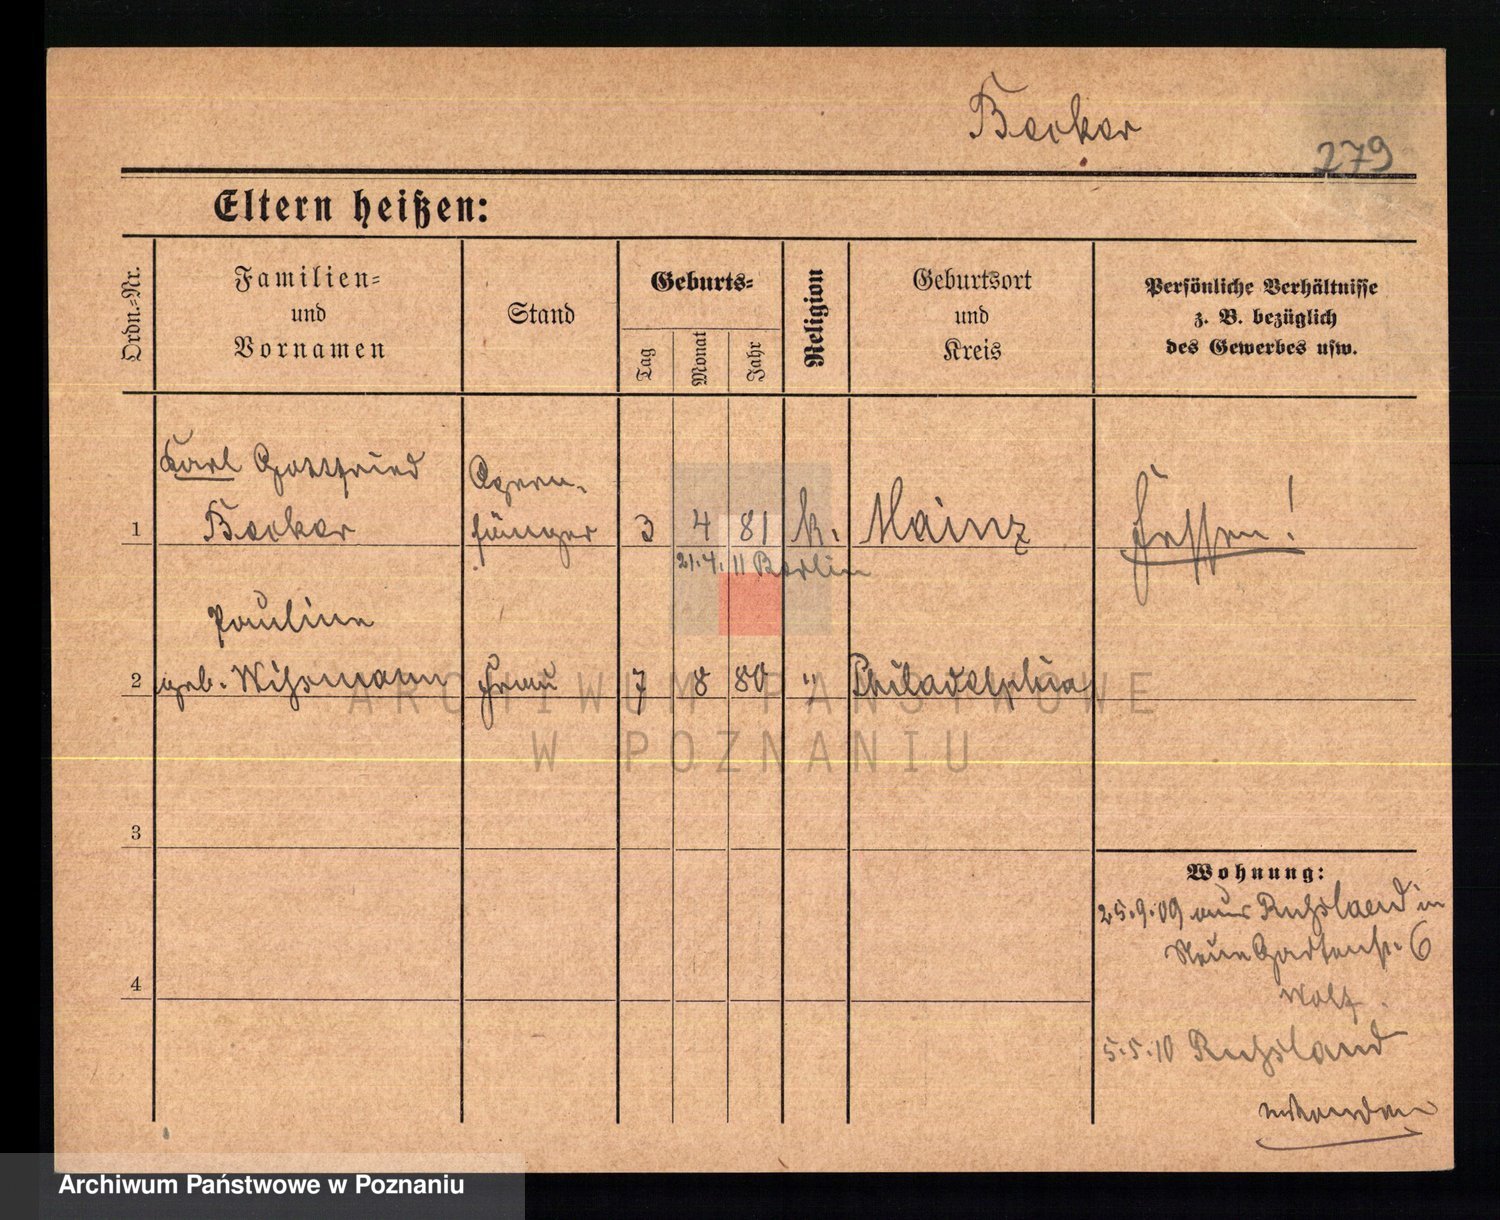 Becker
279
Eltern heißen:
Ordn.-Nr.
Familien-
und
Vornamen
Stand
Geburts-
Tag
Monat
Jahr
Religion
Geburtsort
und
Kreis
Persönliche Verhältnisse
z. B. bezüglich
des Gewerbes usw.
Karl Gottfried
Becker
Opern-
sänger
1
3 4 81 k. Mainz
Hessen!
21.4.11 Berlin
Pauline
2 geb. Frau 7 8 80 " Philadelphia
ARCHIWUM PAŃSTWOWE
W POZNANIU
3
4
Wohnung:
25.9.09 aus Russland in
Neue Gartenstr. 6
Wolf
5.5.10 Russland
Archiwum Państwowe w Poznaniu